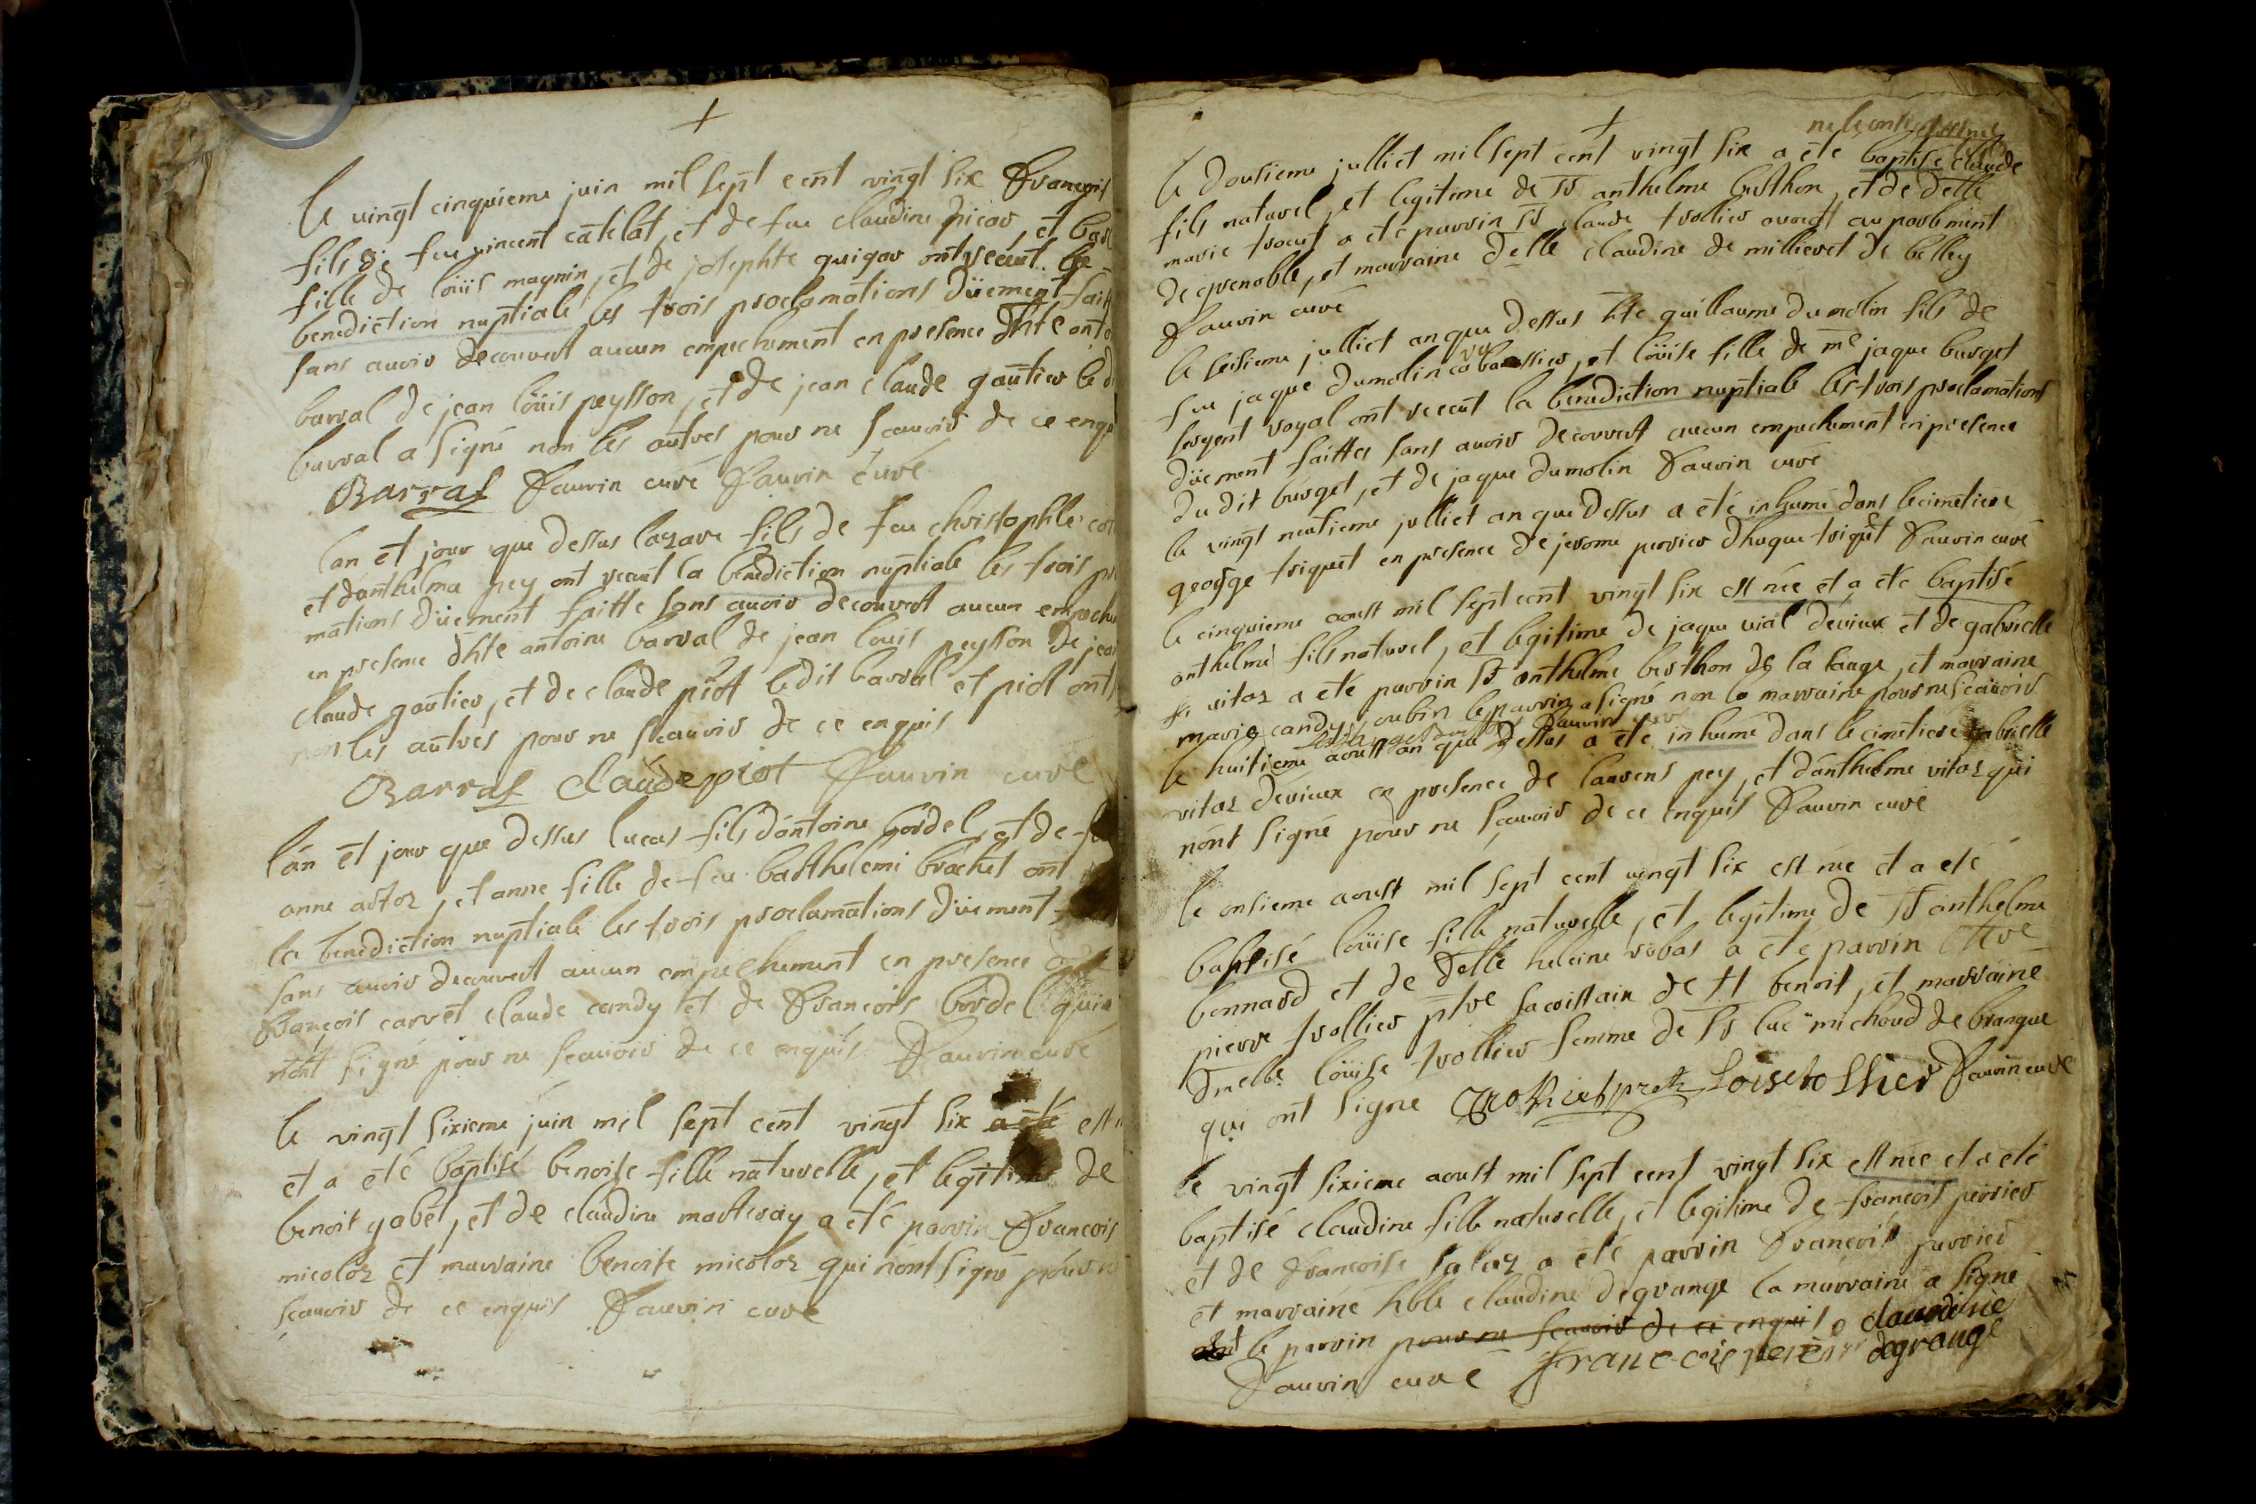 le vingt cinquieme juin mil sept cent vingt six françois
fils de feu vincent catelat, et de feu claudine picar, et
fille de loüis magnin, et de josephte guigar ont receut la
benediction nuptiale les trois proclamations düement
sans avoir decouvert aucun empechement en presence dhte
barral de jean loüis peysson, et de jean claude gautier le
barral a signé non les autres pour ne scavoir de ce
Barral fauvin curé fauvin curé
lan et jour que dessus lazare fils de feu christophle
et danthelma pey ont receut la benediction nuptiale les trois
mations düement faitte sans avoir decouvert aucun
en presence dhte antoine barral de jean louis peysson de jean
claude gautier, et de claude piot ledit barral et piot ont
non les autres pour ne scavoir de ce enquis
Barral claude piot fauvin curé
lan et jour que dessus lucas fils dantoine bordel, et de
anne artoz, et anne fille de feu barthelemi brachet ont
la benediction nuptiale les trois proclamations düement
sans avoir decouvert aucun empechement en presence
françois carret claude candy et de françois bordel qui
nont signé pour ne scavoir de ce enquis fauvin curé
le vingt sixieme juin mil sept cent vingt six a été est
et a été baptisé benoite fille naturelle, et legitime de
benoit gabet, et de claudine marteray a été parrin françois
micoloz et marraine benoite micoloz qui nont signé pour
scavoir de ce enquis fauvin curé
le dousieme julliet mil sept cent vingt six a été baptisé claude
fils naturel, et legitime de sr anthelme berthon, et de delle
marie trocut a été parrin sr claude trollier avocat au parlement
de grenoble, et marraine delle claudine de millieret de belley
fauvin curé
le seisieme julliet an que dessus hte guillaume dumolin fils de
feu jaque dumolin, et loüise fille de me jaque burget
sergent royal ont receut la benediction nuptiale les trois proclamations
düement faittes sans avoir decouvert aucun empechement en presence
du dit burget, et de jaque dumolin fauvin curé
le vingt neufieme julliet an que dessus a été inhumé dans le cimetiere
george triquet en presence de jerome perrier dhugue triquet fauvin curé
le cinquieme aoust mil sept cent vingt six est née et a été baptisé
anthelme fils naturel, et legitime de jaque vial devieux et de gabrielle
vitoz a été parrin sr anthelme berthon de la lange, et marraine
marie candy, le parrin a signé non la marraine pour ne scavoir
fauvin
le huitieme aoust an que dessus a été inhumé dans le cimetiere gabrielle
vitoz devieux en presence de laurens pey, et danthelme vitoz qui
nont signé pour ne scavoir de ce enquis fauvin curé
le onsieme aoust mil sept cent vingt six est née et a eté
baptisé loüise fille naturelle, et legitime de sr anthelme
bonnard et de delle heleine robas a été parrin
pierre trollier ptre sacristain de st benoit, et marraine
dmelle loüise trollier femme de sr luc michoud de brangue
qui ont signe fauvin curé
le vingt sixieme aoust mil sept cent vingt six est née et a été
baptisé claudine fille naturelle, et legitime de françois perrier
et de françoise salaz a été parrin françois perrier
et marraine hble claudine degrange la marraine a signé
le parrin pour ne scavoir de ce enquis claudine
fauvin curé francois perier degrange